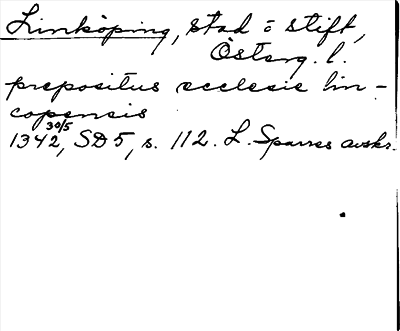 Linköping, stad o stift,
Österg. l.
prepositus ecclesie lin-
copensis
1342 30/5, SD 5, s. 112. L. Sparres avskr.